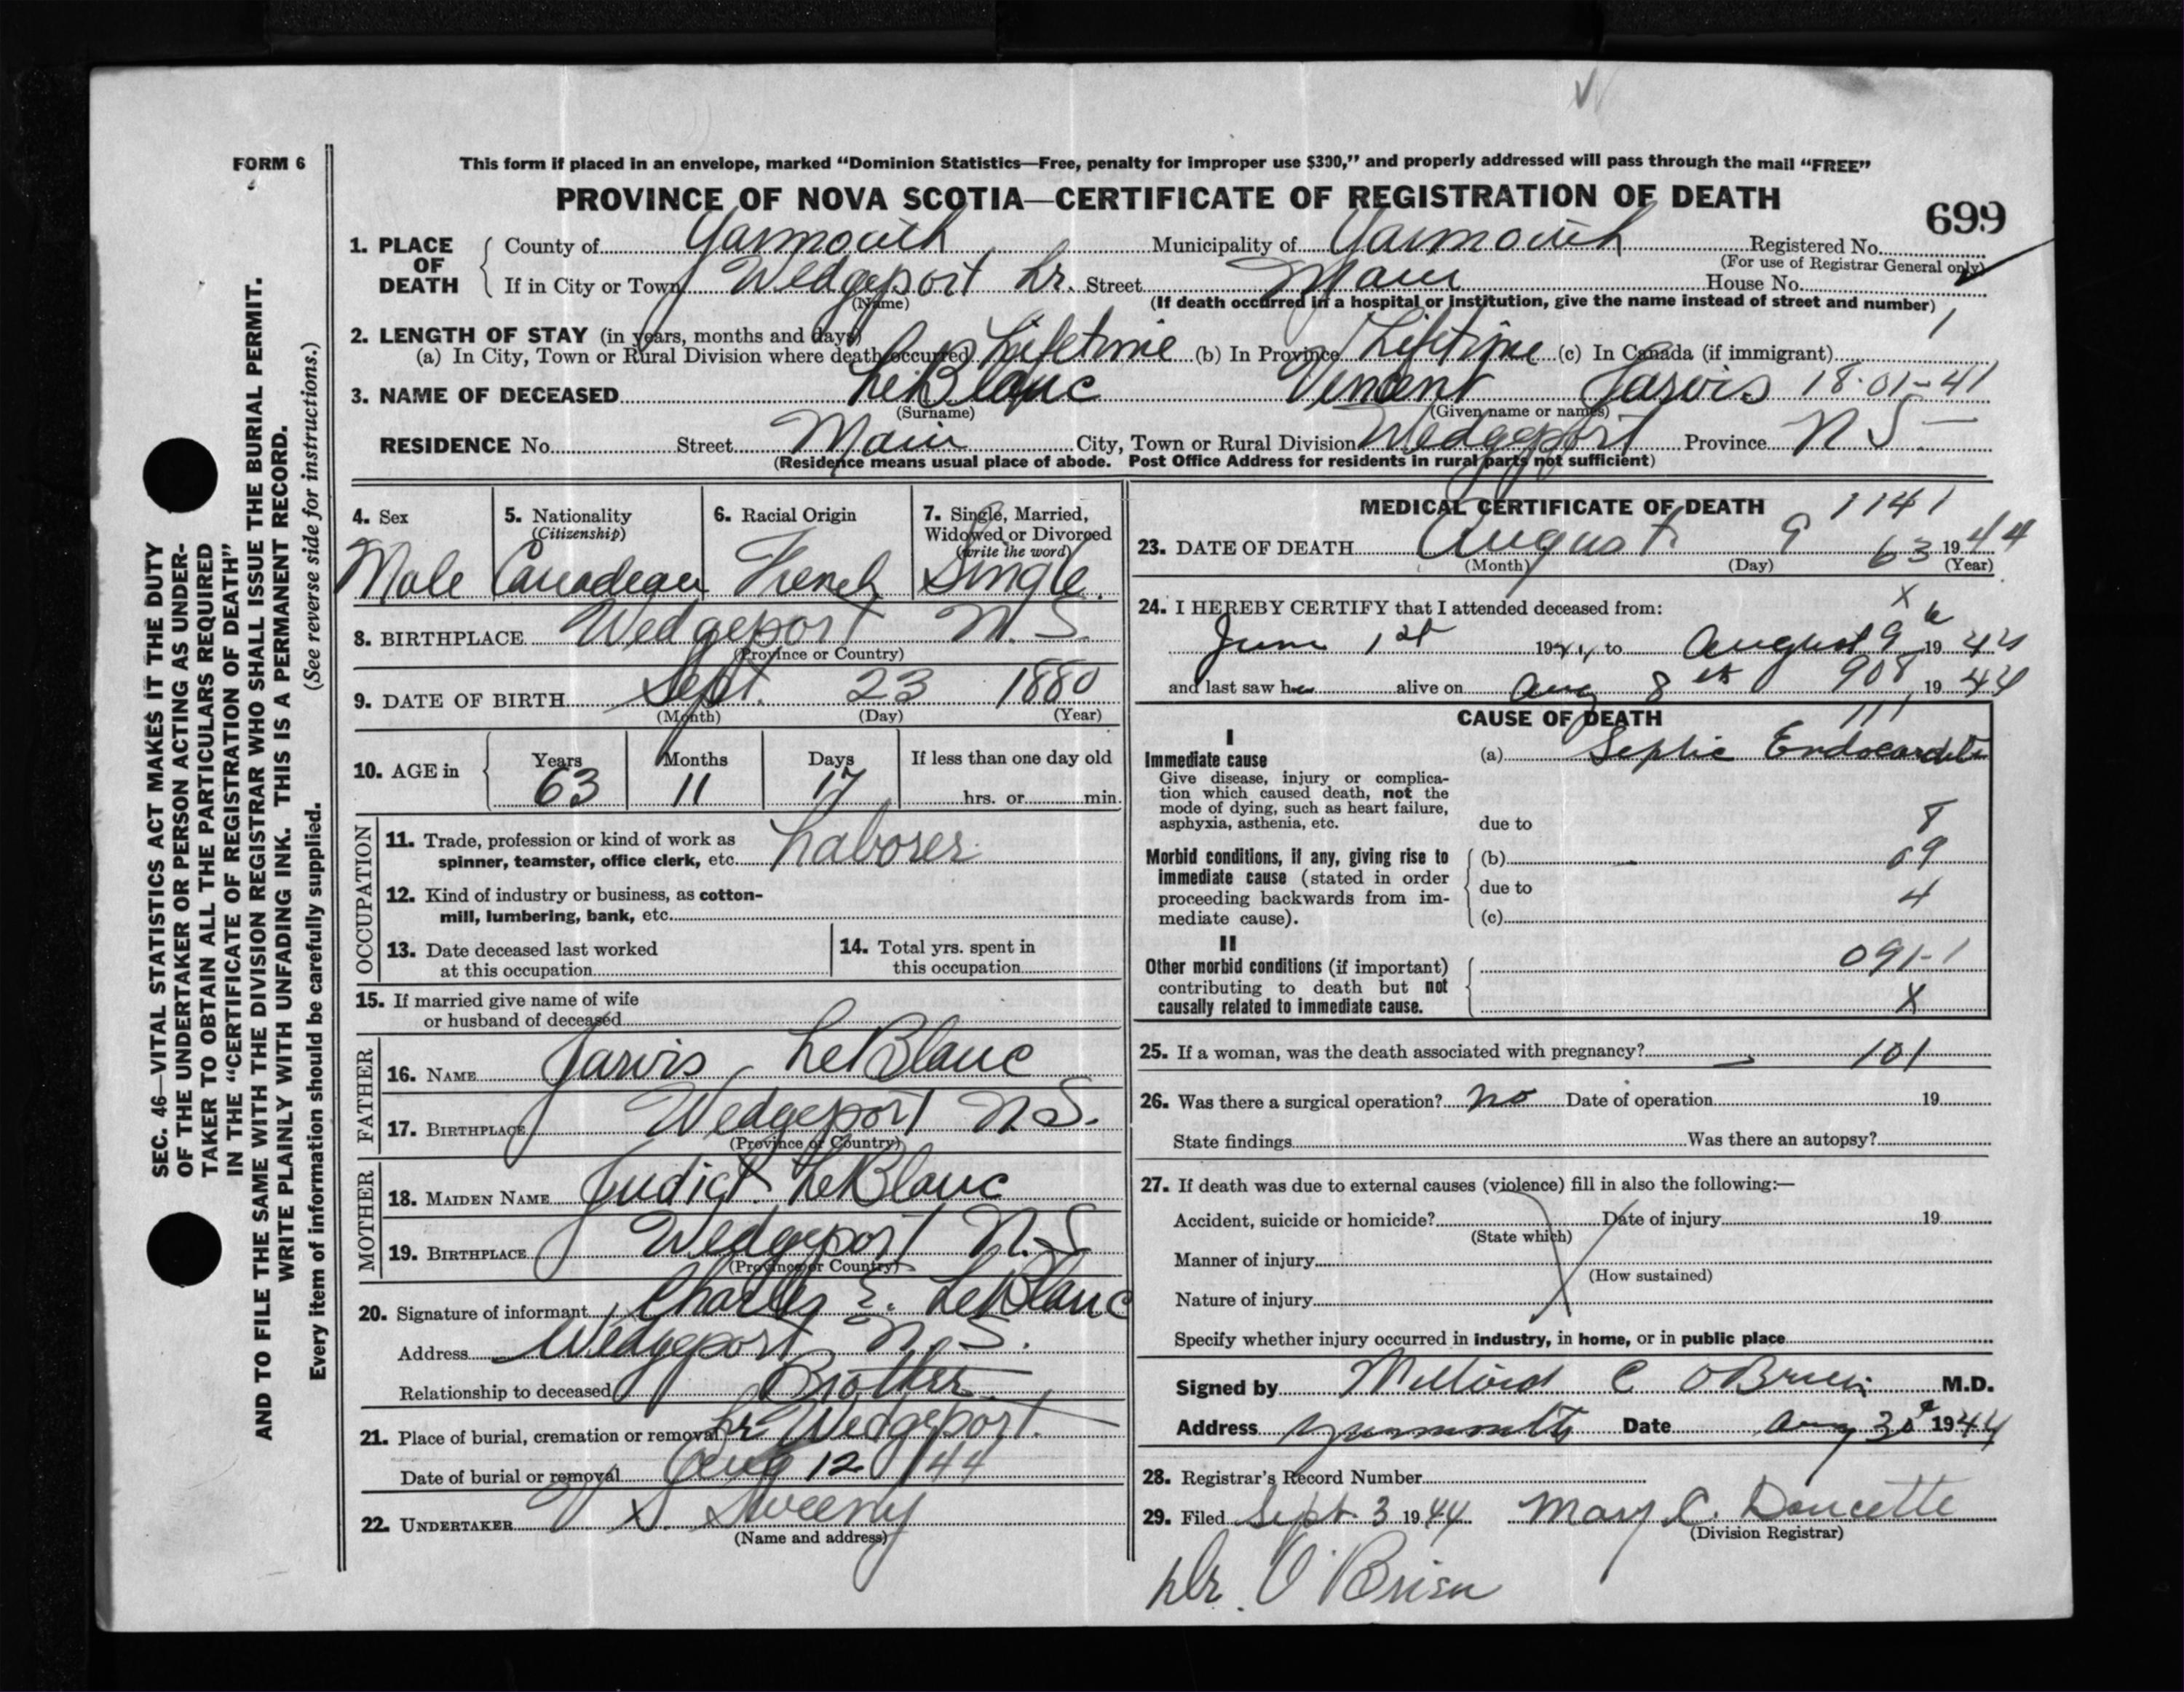 FORM 6
This form if placed in an envelope, marked "Dominion Statistics—Free, penalty for improper use $300," and properly addressed will pass through the mail "FREE"
PROVINCE OF NOVA SCOTIA—CERTIFICATE OF REGISTRATION OF DEATH
699
1. PLACE OF DEATH County of Yarmouth Municipality of Yarmouth Registered No.
(For use of Registrar General only)
If in City or Town Wedgeport Lr. Street Main House No.
(Name) (If death occurred in a hospital or institution, give the name instead of street and number)
2. LENGTH OF STAY (in years, months and days) 1
(a) In City, Town or Rural Division where death occurred Lifetime (b) In Province Lifetime (c) In Canada (if immigrant)
3. NAME OF DECEASED LeBlanc Vincent Jarvis 18-01-41
(Surname) (Given name or names)
RESIDENCE No. Street Main City, Town or Rural Division Wedgeport Province N S
(Residence means usual place of abode. Post Office Address for residents in rural parts not sufficient)
4. Sex 5. Nationality (Citizenship) 6. Racial Origin 7. Single, Married, Widowed or Divorced (write the word)
Male Canadian French Single.
8. BIRTHPLACE Wedgeport N. S.
(Province or Country)
9. DATE OF BIRTH Sept. 23 1880
(Month) (Day) (Year)
10. AGE in Years Months Days If less than one day old
63 11 17 hrs. or min.
OCCUPATION
11. Trade, profession or kind of work as
spinner, teamster, office clerk, etc. Laborer
12. Kind of industry or business, as cotton-
mill, lumbering, bank, etc.
13. Date deceased last worked
at this occupation
14. Total yrs. spent in
this occupation
15. If married give name of wife
or husband of deceased
FATHER
16. NAME Jarvis LeBlanc
17. BIRTHPLACE Wedgeport N.S.
(Province or Country)
MOTHER
18. MAIDEN NAME Judict LeBlanc
19. BIRTHPLACE Wedgeport N.S
(Province or Country)
20. Signature of informant Charles E. LeBlanc
Address Wedgeport N. S.
Relationship to deceased Brother
21. Place of burial, cremation or removal Lr Wedgeport.
Date of burial or removal Aug 12 /44
22. UNDERTAKER V S. Sweeny
(Name and address)
MEDICAL CERTIFICATE OF DEATH 1141
23. DATE OF DEATH August 9 63 1944
(Month) (Day) (Year)
24. I HEREBY CERTIFY that I attended deceased from: x
June 1st 1944 to August 9 1944
and last saw h alive on Aug 8th 908, 1944
CAUSE OF DEATH 111
I
Immediate cause
Give disease, injury or complica-
tion which caused death, not the
mode of dying, such as heart failure,
asphyxia, asthenia, etc.
(a) Septic Endocarditis
due to 8
Morbid conditions, if any, giving rise to
immediate cause (stated in order
proceeding backwards from im-
mediate cause).
(b) — 09
due to 4
(c)
II
Other morbid conditions (if important)
contributing to death but not
causally related to immediate cause.
091-1
X
25. If a woman, was the death associated with pregnancy? — 101
26. Was there a surgical operation? no Date of operation 19
State findings Was there an autopsy?
27. If death was due to external causes (violence) fill in also the following:—
Accident, suicide or homicide? Date of injury 19
(State which)
Manner of injury
(How sustained)
Nature of injury
Specify whether injury occurred in industry, in home, or in public place
Signed by C OBrien M.D.
Address Yarmouth Date Aug 30 1944
28. Registrar's Record Number
29. Filed Sept 3 1944 Mary C. Doucette
(Division Registrar)
Dr. O'Brien
SEC. 46—VITAL STATISTICS ACT MAKES IT THE DUTY
OF THE UNDERTAKER OR PERSON ACTING AS UNDER-
TAKER TO OBTAIN ALL THE PARTICULARS REQUIRED
IN THE "CERTIFICATE OF REGISTRATION OF DEATH"
AND TO FILE THE SAME WITH THE DIVISION REGISTRAR WHO SHALL ISSUE THE BURIAL PERMIT.
WRITE PLAINLY WITH UNFADING INK. THIS IS A PERMANENT RECORD.
Every item of information should be carefully supplied. (See reverse side for instructions.)